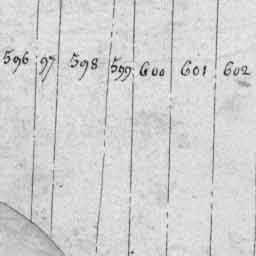 596 97 598 599 600 601 602